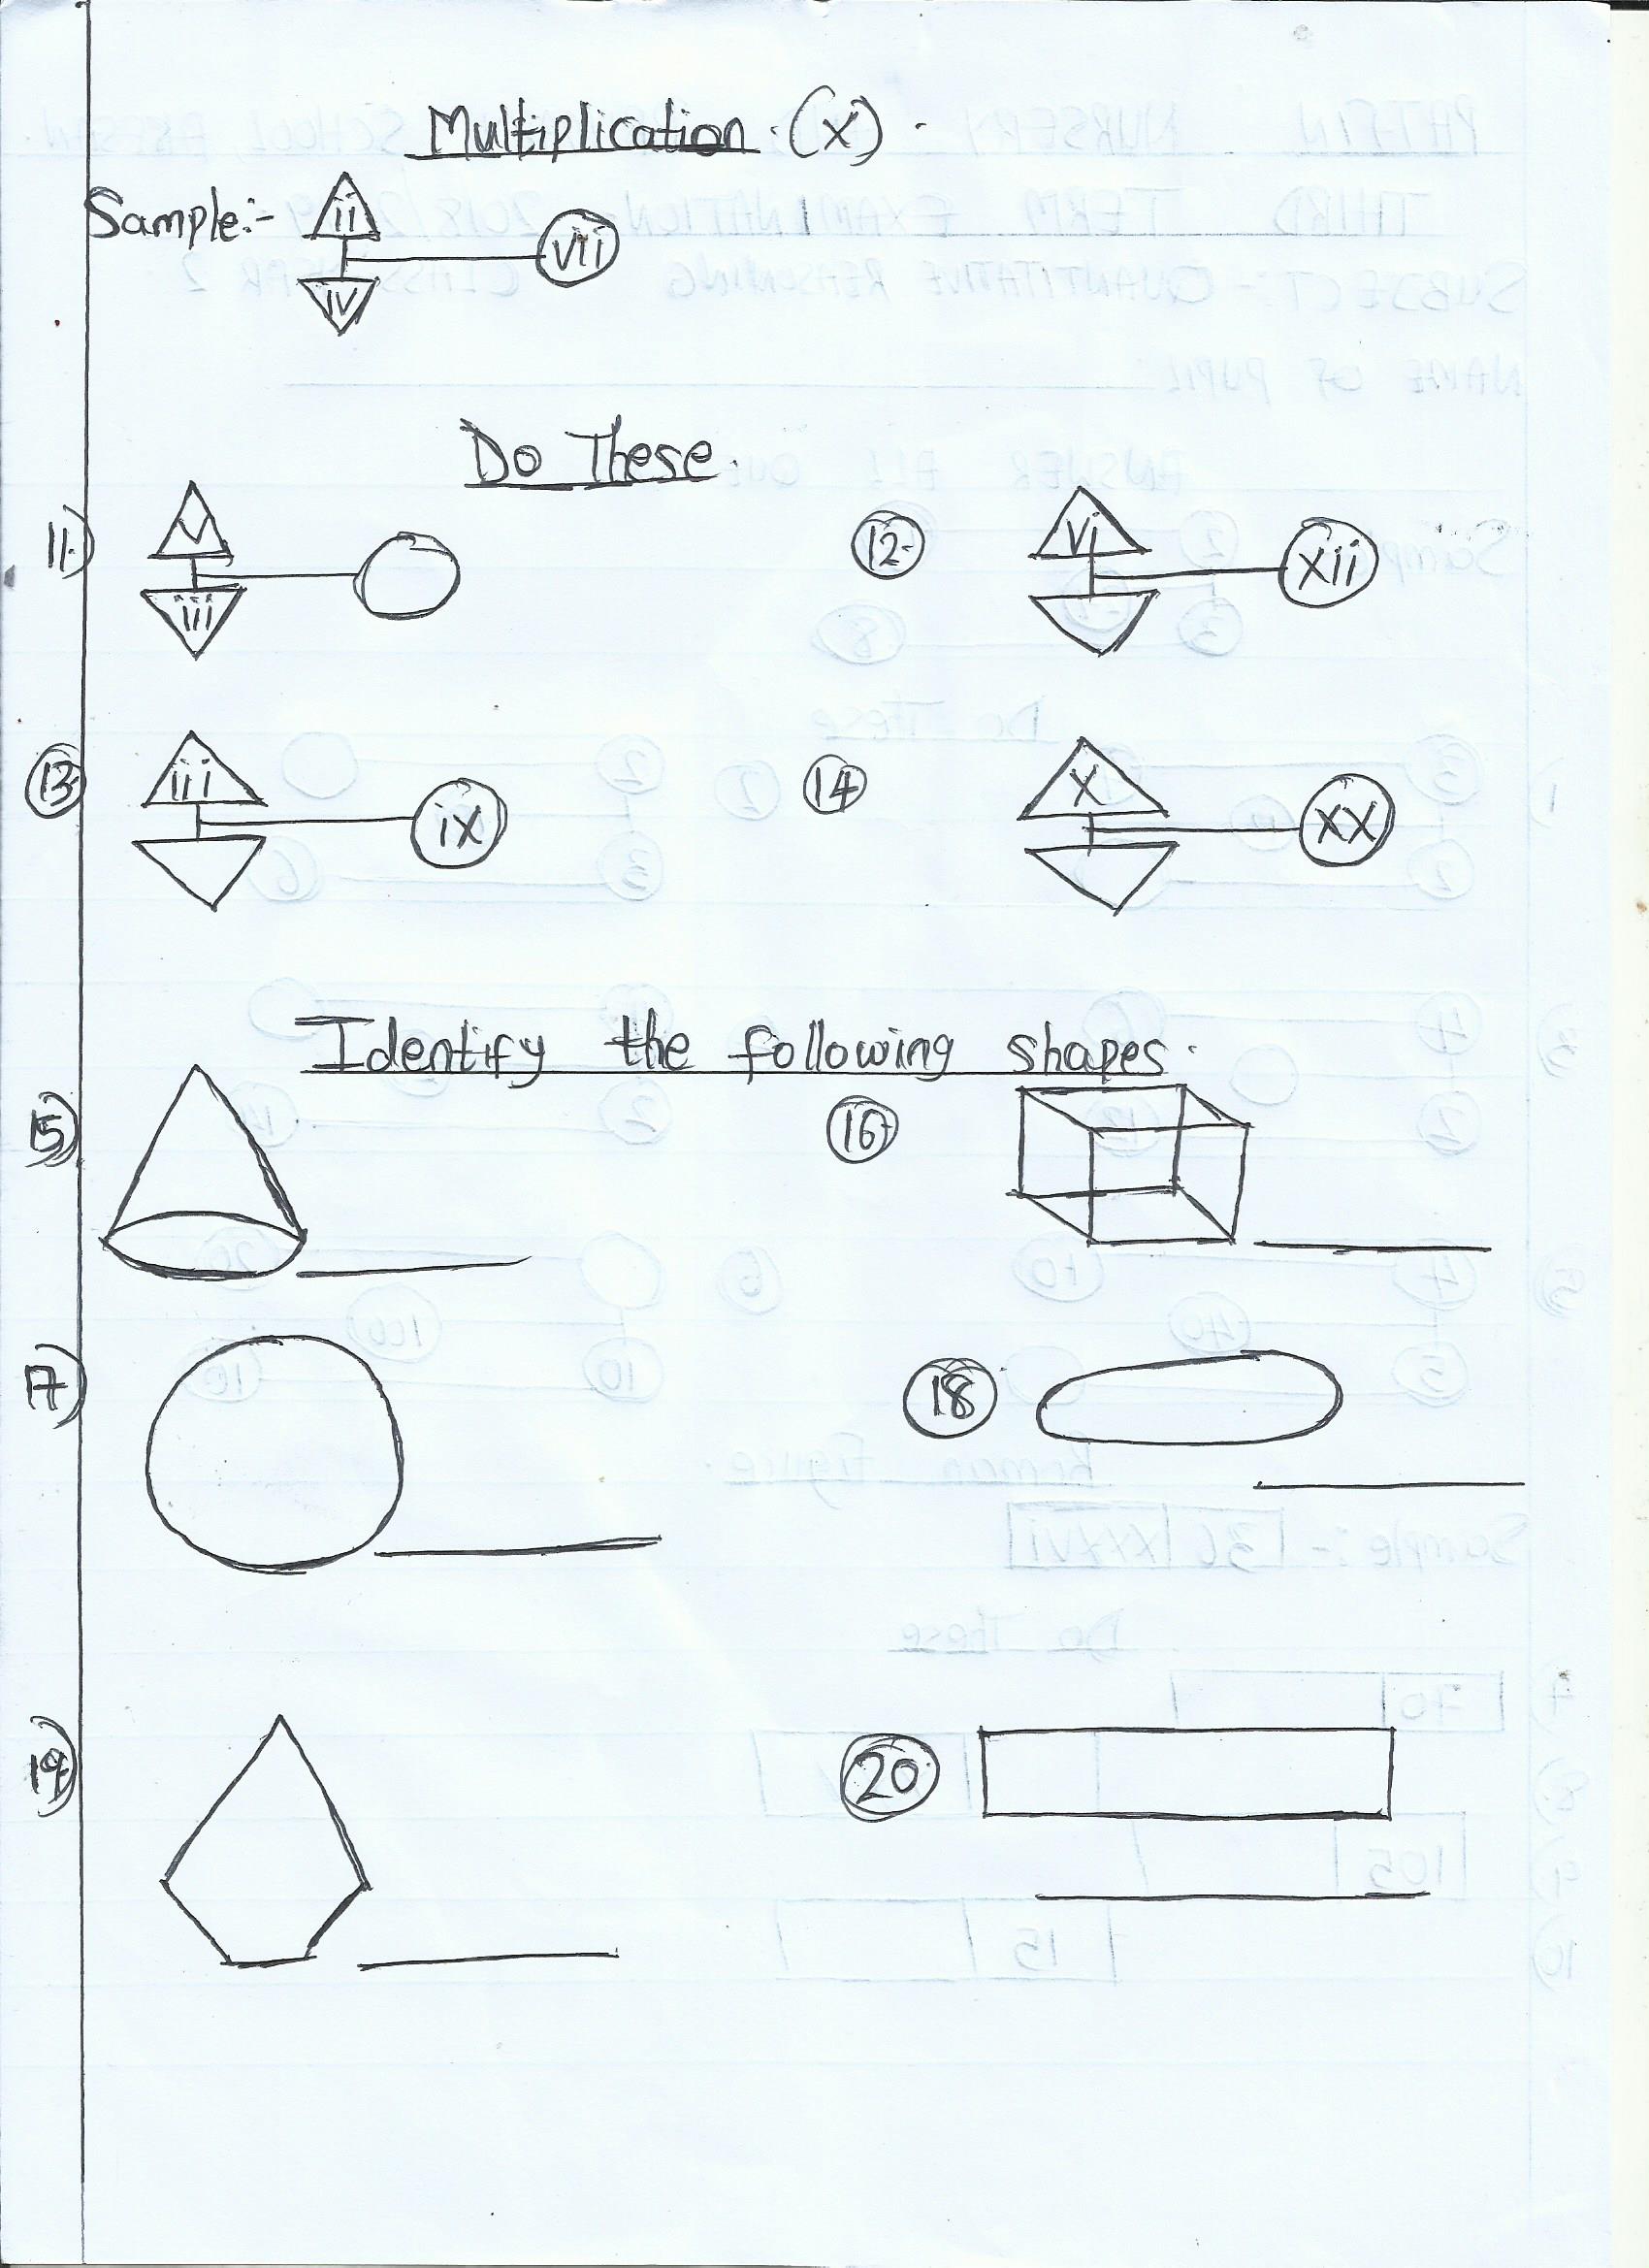 Multiplication. (x).
Sample:- ii vii
iv
Do These.
11) V 12. Vi xii
iii
13. iii ix 14 X XX
Identify the following shapes.
15) 16.
17) 18
19) 20